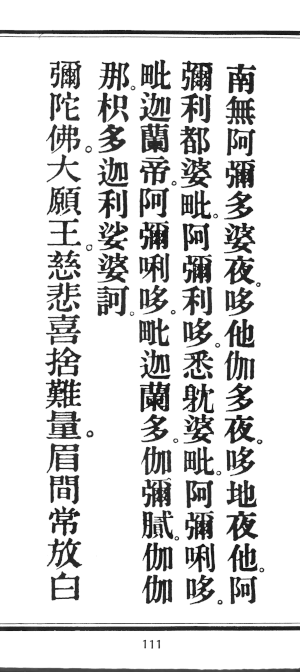 南無阿彌多婆夜。哆他伽多夜。哆地夜他。阿
彌利都婆毗。阿彌利哆。悉躭婆毗。阿彌唎哆。
毗迦蘭帝。阿彌唎哆。毗迦蘭多。伽彌膩。伽伽
那。枳多迦利娑婆訶。
彌陀佛。大願王。慈悲喜捨難量。眉間常放白
111